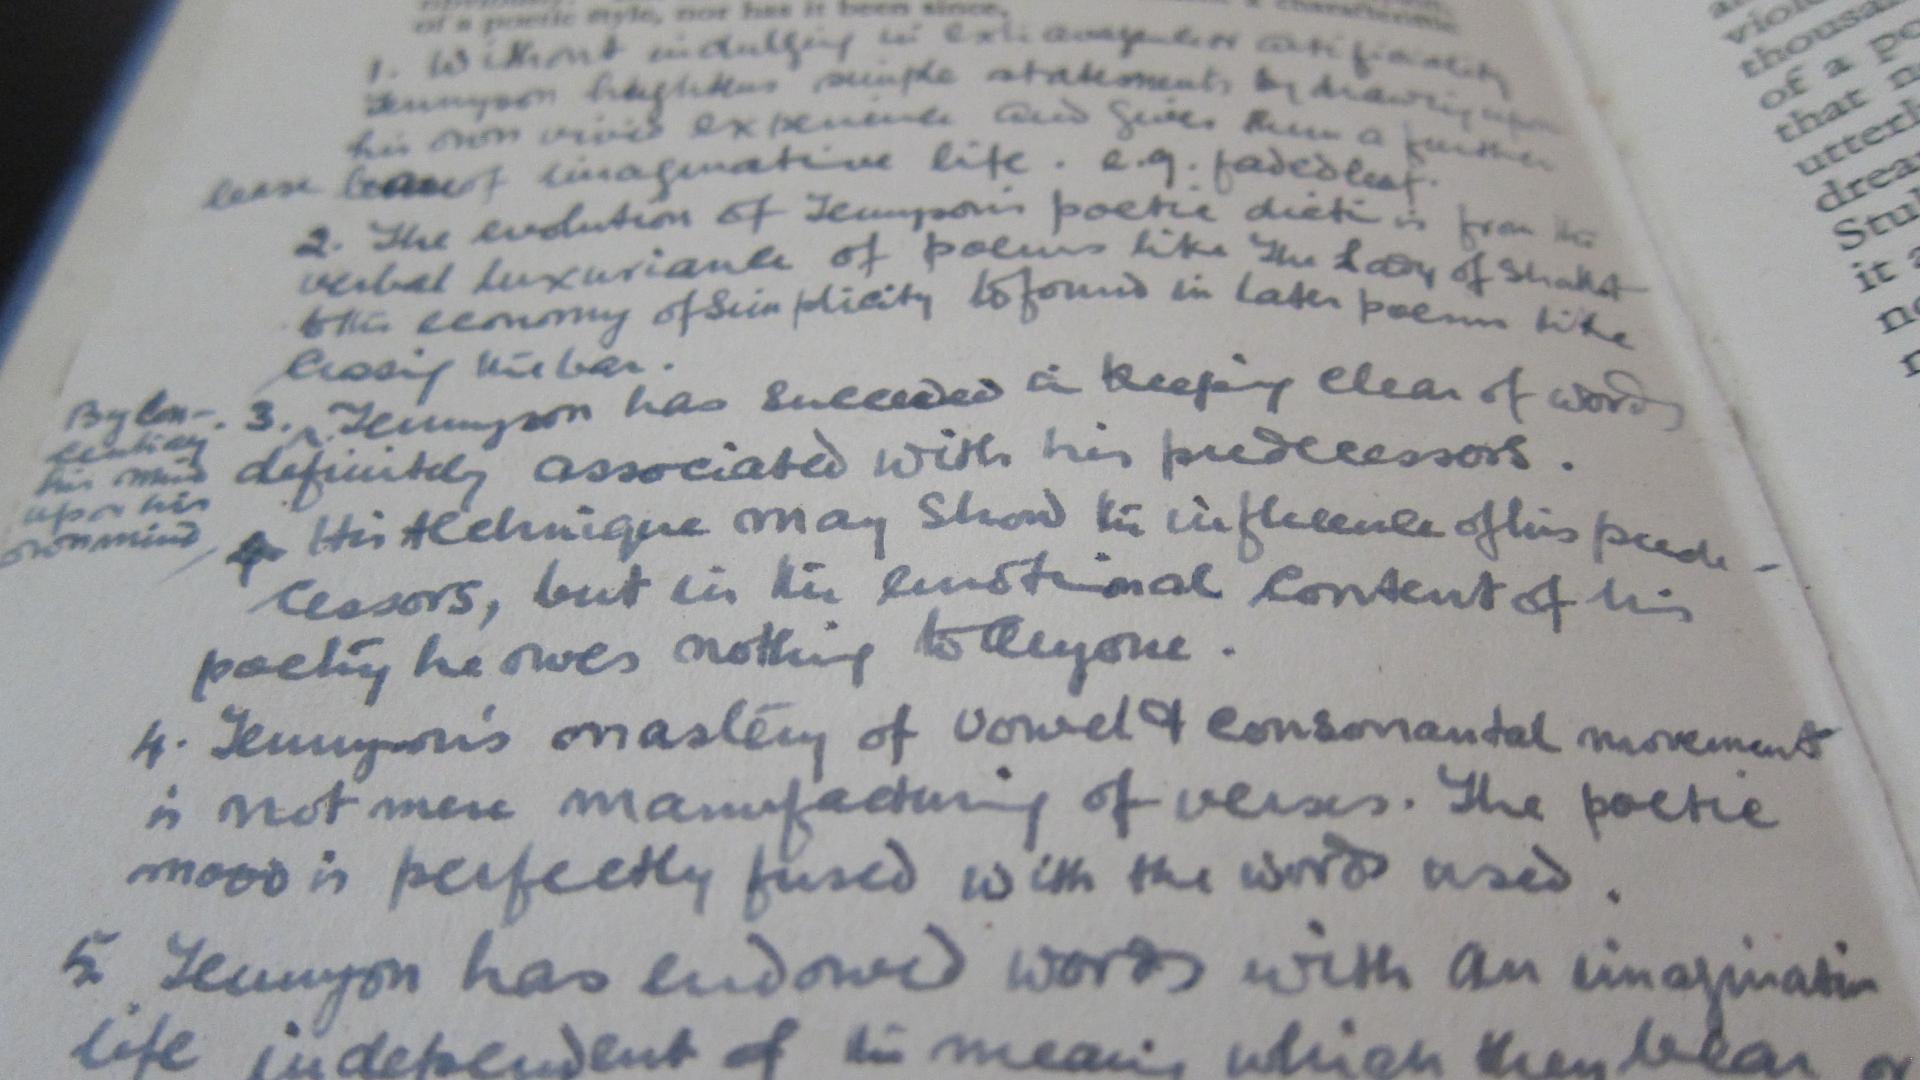 of a poetic style, nor has it been since.
1. Without indulging in extravagance or artificiality
Tennyson heightens simple statements by drawing upon
his own vivid experience and gives them a further
lease of imaginative life. e.g. faded leaf.
2. The evolution of Tennyson's poetic dicti is from the
verbal luxuriance of poems like The Lady of Shalott
to the economy of simplicity to found in later poems like
Crossig the bar.
By con-
centrating
his mind
upon his
own mind
3. Tennyson has succeeded in keeping clear of words
definitely associated with his predecessors.
His technique may show the influence of his prede-
cessors, but in the emotional content of his
poetry he owes nothing to anyone.
4. Tennyson's mastery of vowel & consonantal movement
is not mere manufacturing of verses. The poetic
mood is perfectly fused with the words used.
5 Tennyson has endowed words with an imaginative
life independent of the meaning which they bear or
thousan
of a po
that n
utterl
drea
Stu
it a